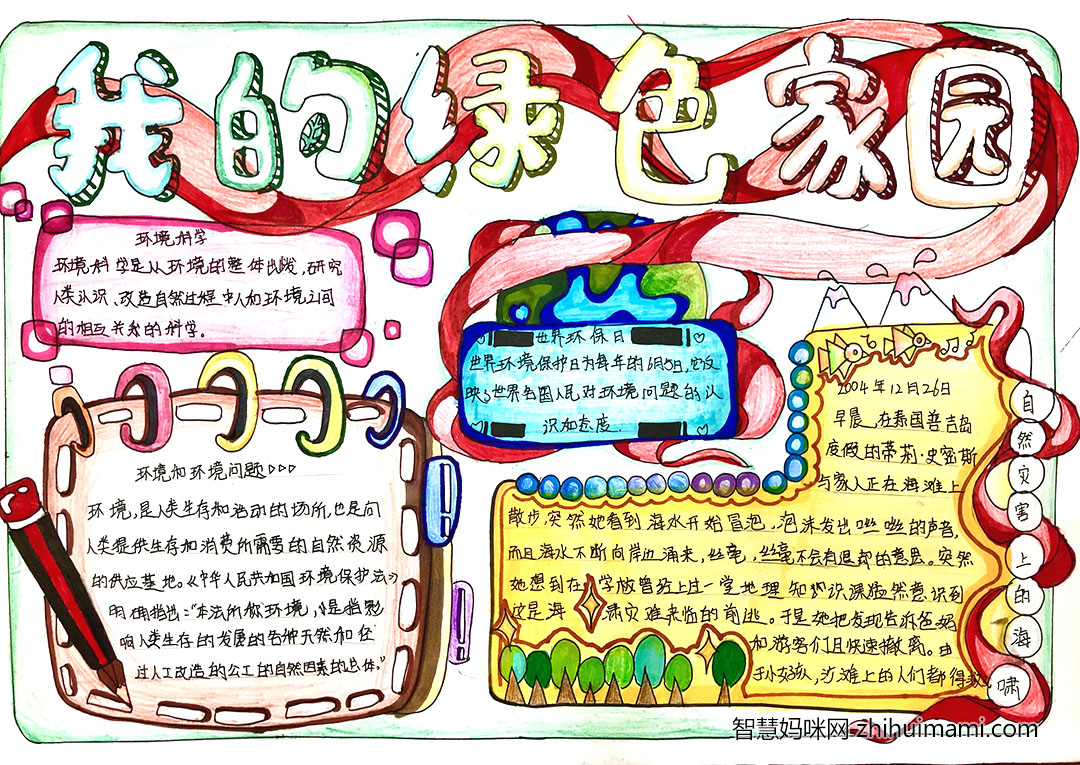 我的绿色家园
环境科学
环境科学是从环境的整体出发,研究
人类认识、改造自然过程中人和环境之间
的相互关系的科学。
世界环保日
世界环境保护日为每年的6月5日,它反
映了世界各国人民对环境问题的认
识和态度.
环境和环境问题
环境,是人类生存和活动的场所,也是向
人类提供生存和消费所需要的自然资源
的供应基地。《中华人民共和国环境保护法》
明确指出:“本法所称环境,是指影
响人类生存的发展的各种天然和任
过人工改造的公工的自然因素的总体.”
2004年12月26日
早晨,在泰国普吉岛
度假的蒂莉·史密斯
与家人正在海滩上
散步,突然她看到海水开始冒泡,泡沫发出咝咝的声音,
而且海水不断向岸边涌来,丝毫,丝毫不会有退却的意思。突然
她想到在学放曾经上过一堂地理知识课猛然意识到
这是海啸灾难来临的前兆。于是她把发现告诉爸妈
和游客们且快速撤离。由
于小女孩,沙滩上的人们都得救。
自然灾害上的海啸
智慧妈咪网 zhihuimami.com